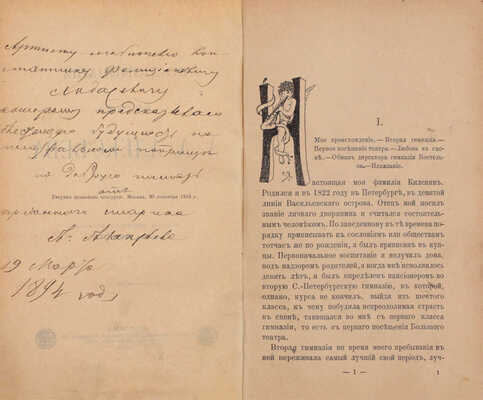 Артисту любителю Кон-
стантину
Любасевичу
которому предсказываю
блестящую будущность на
театральном поприще
Дозволено цензурою. Москва, 20 сентября 1893 г.
преданного старика
А. Алексеева
19 Марта
1894 года
I.
Мое происхожденіе. — Вторая гимназія. —
Первое посѣщеніе театра. — Любовь къ сце-
нѣ. — Обманъ директора гимназіи Постель-
са. — Плаваніе.
Настоящая моя фамилія Киленинъ.
Родился я въ 1822 году въ Петербургѣ, въ девятой
линіи Васильевскаго острова. Отецъ мой носилъ
званіе личнаго дворянина и считался состоятель-
нымъ человѣкомъ. По заведенному въ тѣ времена по-
рядку приписывать къ сословіямъ или обществамъ
тотчасъ же по рожденіи, я былъ приписанъ въ куп-
цы. Первоначальное воспитаніе я получилъ дома,
подъ надзоромъ родителей, а когда мнѣ исполнилось
девять лѣтъ, я былъ опредѣленъ пансіонеромъ во
вторую С.-Петербургскую гимназію, въ которой,
однако, курса не кончилъ, выйдя изъ шестого
класса, къ чему побудила непреодолимая страсть
къ сценѣ, таившаяся во мнѣ съ перваго класса
гимназіи, то есть съ перваго посѣщенія Большого
театра.
Вторая гимназія во время моего пребыванія въ
ней переживала самый лучшій свой періодъ, луч-
— 1 —
1